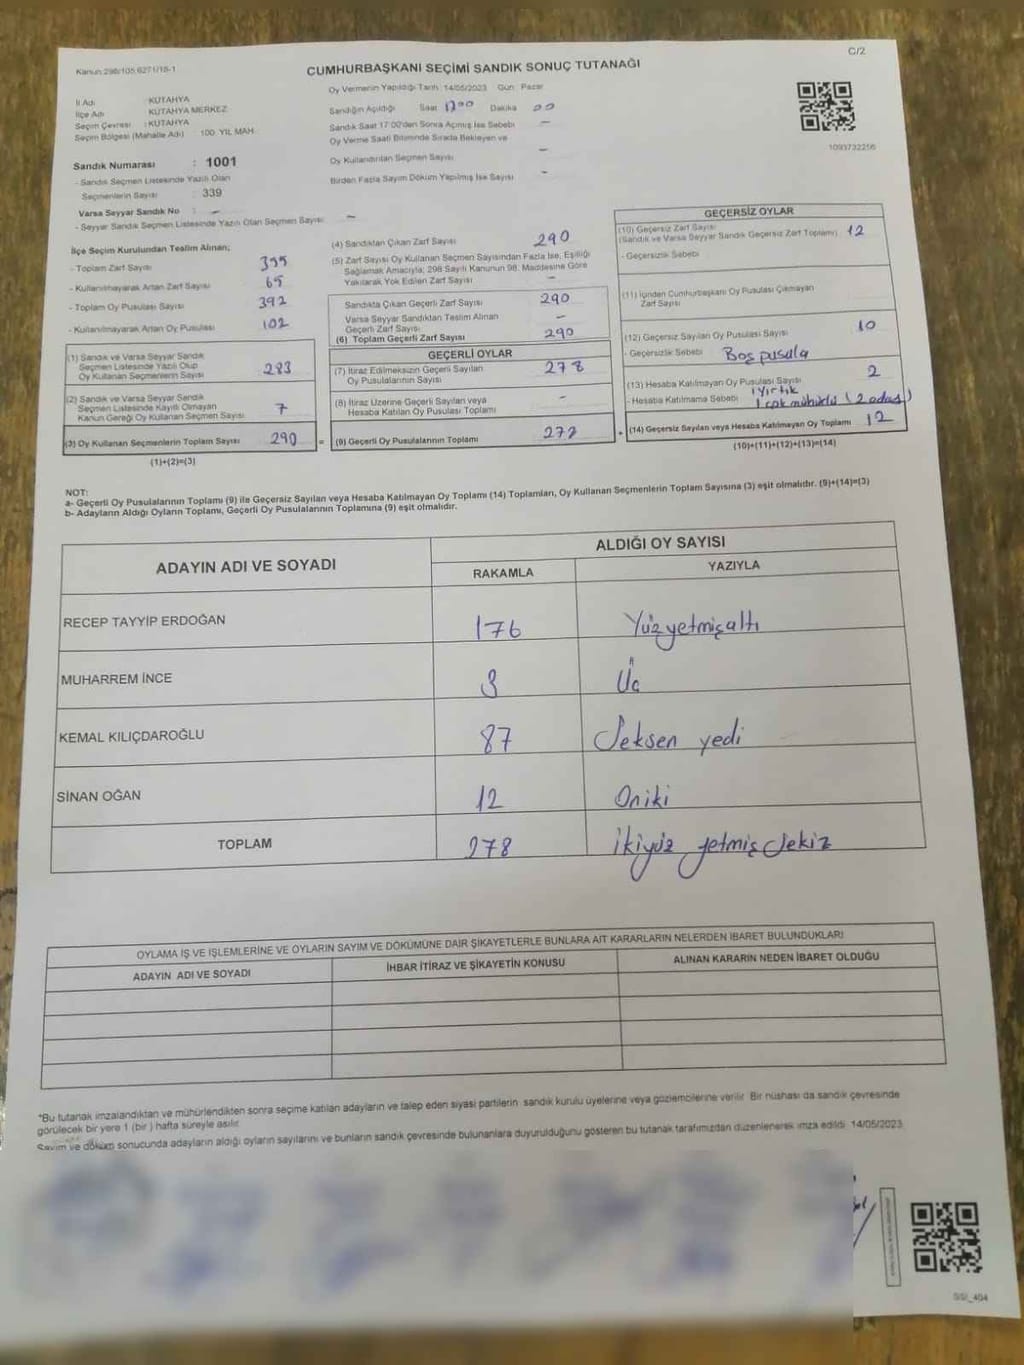 C/2
Kanun:298/105,6271/18-1
CUMHURBAŞKANI SEÇİMİ SANDIK SONUÇ TUTANAĞI
İl Adı : KÜTAHYA
İlçe Adı : KÜTAHYA MERKEZ
Seçim Çevresi : KÜTAHYA
Seçim Bölgesi (Mahalle Adı) 100. YIL MAH.
Sandık Numarası : 1001
- Sandık Seçmen Listesinde Yazılı Olan
Seçmenlerin Sayısı : 339
Varsa Seyyar Sandık No : -
- Seyyar Sandık Seçmen Listesinde Yazılı Olan Seçmen Sayısı : -
Oy Vermenin Yapıldığı Tarih 14/05/2023 Gün Pazar
Sandığın Açıldığı Saat 17:00 Dakika 00
Sandık Saat 17:00'den Sonra Açılmış İse Sebebi -
Oy Verme Saati Bitiminde Sırada Bekleyen ve
Oy Kullandırılan Seçmen Sayısı -
Birden Fazla Sayım Döküm Yapılmış İse Sayısı -
1093732256
İlçe Seçim Kurulundan Teslim Alınan;
- Toplam Zarf Sayısı 355
- Kullanılmayarak Artan Zarf Sayısı 65
- Toplam Oy Pusulası Sayısı 392
- Kullanılmayarak Artan Oy Pusulası 102
(1) Sandık ve Varsa Seyyar Sandık
Seçmen Listesinde Yazılı Olup
Oy Kullanan Seçmenlerin Sayısı 283
(2) Sandık ve Varsa Seyyar Sandık
Seçmen Listesinde Kayıtlı Olmayan
Kanun Gereği Oy Kullanan Seçmen Sayısı 7
(3) Oy Kullanan Seçmenlerin Toplam Sayısı 290 =
(1)+(2)=(3)
(4) Sandıktan Çıkan Zarf Sayısı 290
(5) Zarf Sayısı Oy Kullanan Seçmen Sayısından Fazla İse, Eşitliği
Sağlamak Amacıyla; 298 Sayılı Kanunun 98. Maddesine Göre
Yakılarak Yok Edilen Zarf Sayısı -
Sandıkta Çıkan Geçerli Zarf Sayısı 290
Varsa Seyyar Sandıktan Teslim Alınan
Geçerli Zarf Sayısı -
(6) Toplam Geçerli Zarf Sayısı 290
GEÇERLİ OYLAR
(7) İtiraz Edilmeksizin Geçerli Sayılan
Oy Pusulalarının Sayısı 278
(8) İtiraz Üzerine Geçerli Sayılan veya
Hesaba Katılan Oy Pusulası Toplamı -
(9) Geçerli Oy Pusulalarının Toplamı 278 +
GEÇERSİZ OYLAR
(10) Geçersiz Zarf Sayısı
(Sandık ve Varsa Seyyar Sandık Geçersiz Zarf Toplamı) 12
- Geçersizlik Sebebi
(11) İçinden Cumhurbaşkanı Oy Pusulası Çıkmayan
Zarf Sayısı
(12) Geçersiz Sayılan Oy Pusulası Sayısı 10
- Geçersizlik Sebebi Boş pusula
(13) Hesaba Katılmayan Oy Pusulası Sayısı 2
- Hesaba Katılmama Sebebi 1 Yırtık
1 çok mühürlü (2 adas)
(14) Geçersiz Sayılan veya Hesaba Katılmayan Oy Toplamı 12
(10)+(11)+(12)+(13)=(14)
NOT:
a- Geçerli Oy Pusulalarının Toplamı (9) ile Geçersiz Sayılan veya Hesaba Katılmayan Oy Toplamı (14) Toplamları, Oy Kullanan Seçmenlerin Toplam Sayısına (3) eşit olmalıdır. (9)+(14)=(3)
b- Adayların Aldığı Oyların Toplamı, Geçerli Oy Pusulalarının Toplamına (9) eşit olmalıdır.
ADAYIN ADI VE SOYADI
ALDIĞI OY SAYISI
RAKAMLA YAZIYLA
RECEP TAYYİP ERDOĞAN 176 Yüzyetmişaltı
MUHARREM İNCE 3 Üç
KEMAL KILIÇDAROĞLU 87 Seksen yedi
SİNAN OĞAN 12 Oniki
TOPLAM 278 İkiyüz yetmiş sekiz
OYLAMA İŞ VE İŞLEMLERİNE VE OYLARIN SAYIM VE DÖKÜMÜNE DAİR ŞİKAYETLERLE BUNLARA AİT KARARLARIN NELERDEN İBARET BULUNDUKLARI
ADAYIN ADI VE SOYADI İHBAR İTİRAZ VE ŞİKAYETİN KONUSU ALINAN KARARIN NEDEN İBARET OLDUĞU
*Bu tutanak imzalandıktan ve mühürlendikten sonra seçime katılan adayların ve talep eden siyasi partilerin sandık kurulu üyelerine veya gözlemcilerine verilir. Bir nüshası da sandık çevresinde
görülecek bir yere 1 (bir) hafta süreyle asılır.
Sayım ve döküm sonucunda adayların aldığı oyların sayılarını ve bunların sandık çevresinde bulunanlara duyurulduğunu gösteren bu tutanak tarafımızdan düzenlenerek imza edildi. 14/05/2023
SSI_404